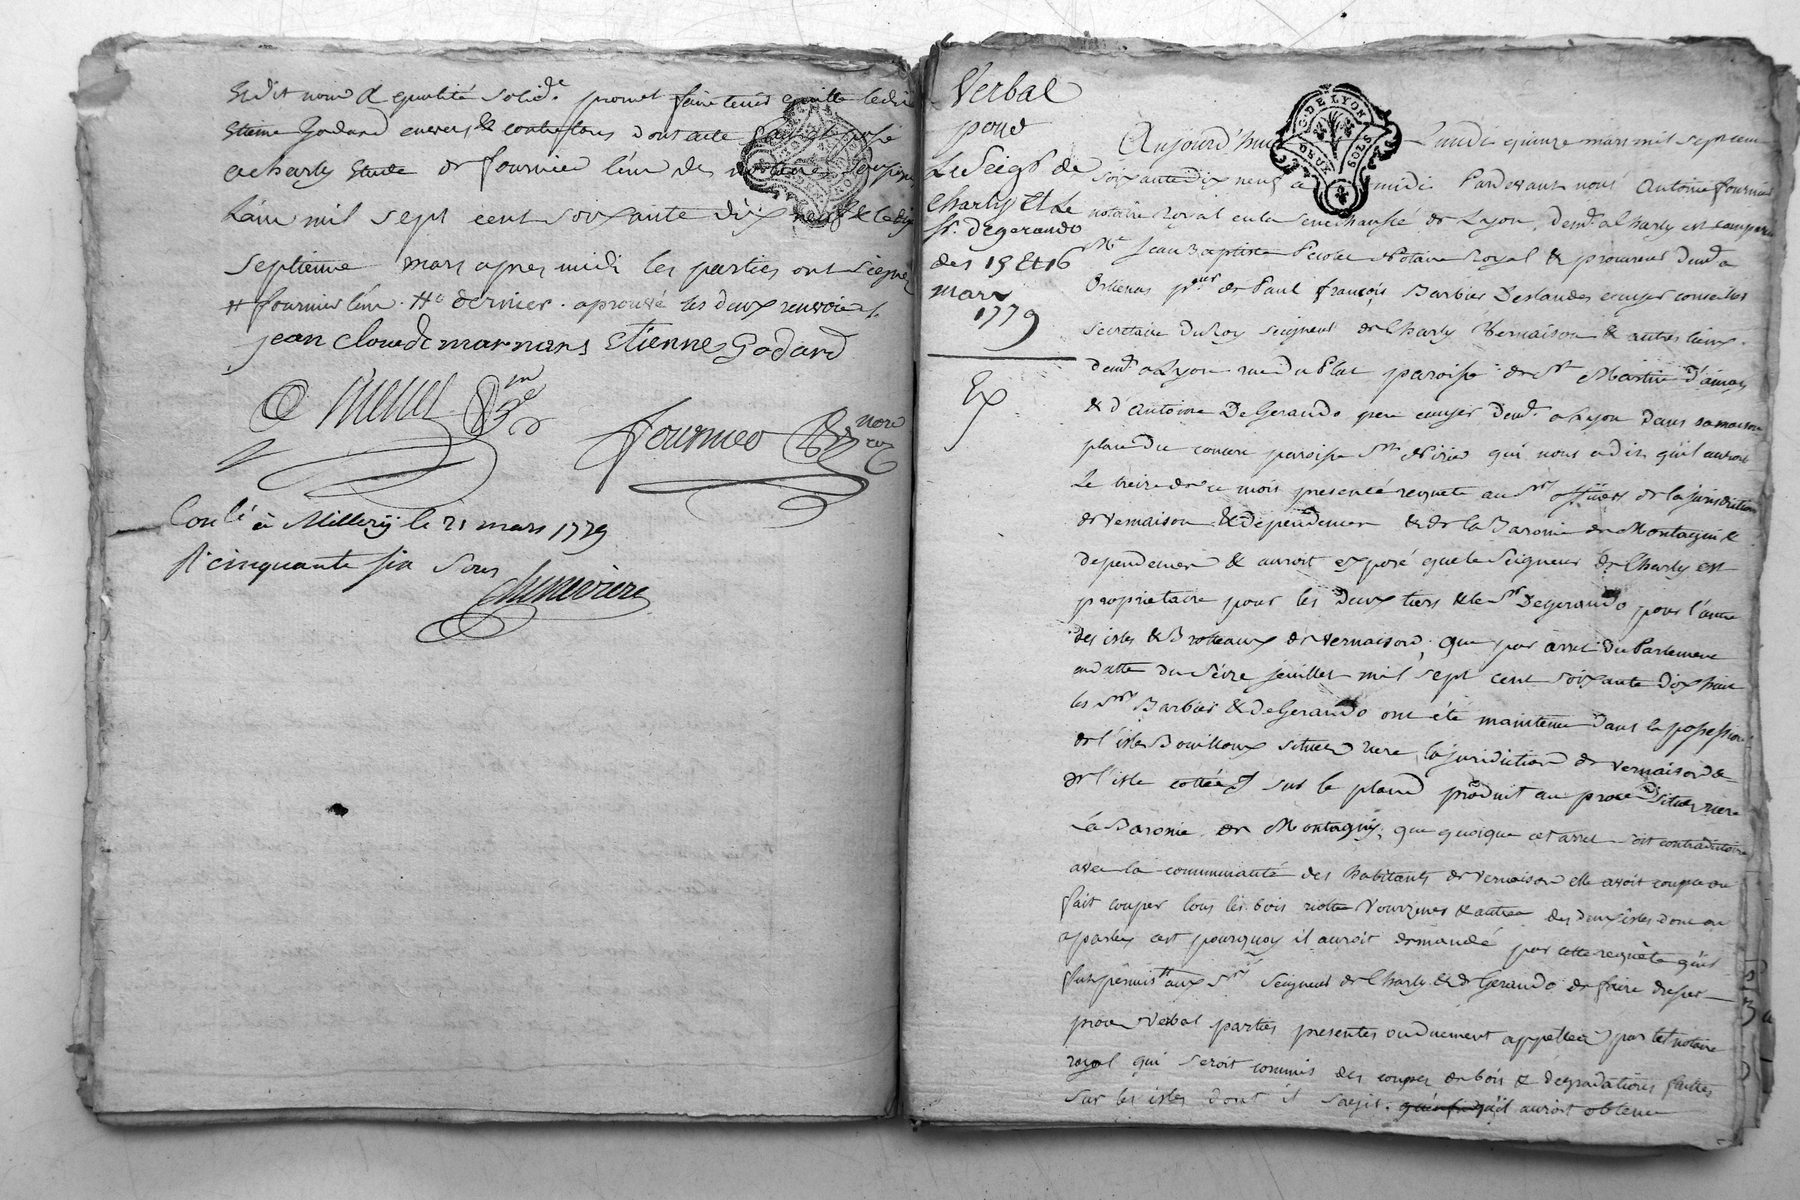 Etienne Godard envers & contre tous dont acte
a charly Etude de fournier l'un des notaires
L'an mil sept cent soixante dix neuf & le dix
septieme mars apres midi les parties ont signé
fournier l'un. dernier. aprouvé les deux renvois
jean cloude marnans Etienne Godard
fournier
Con.lé à Millery le 21 mars 1779
R. cinquante six sous
chenevriere
Verbal
pour
Le Seig.r de
Charly Et Le
Sr. Degerando
des 15 Et 16
mars
1779
Ex
G. DE LYON
DEUX SOLS
Aujourd'huy Lundi quinze mars mil sept cent
soixante dix neuf a midi Pardevant nous Antoine fournier
notaire Royal en la senechaussé de Lyon, dem.t a Charly est comparu
M.e Jean Baptiste Notaire Royal & procureur dem.t a
Orlienas de Paul françois Barbier Deslandes ecuyer conseiller
secretaire Du Roy seigneur de Charly Vernaison & autres lieux.
dem.t a Lyon rue du Plat paroisse de St Martin d'ainay
& d'Antoine DeGerando ecuyer dem.t a Lyon dans sa maison
paroisse St Nizier qui nous a dit qu'il auroit
Le treize de ce mois presenté requete aux Srs officiers de la jurisdiction
de vernaison & dependences & de la Baronie de Montagni &
dependences & auroit exposé que le Seigneur de Charly est
proprietaire pour les Deux tiers & le Sr DeGerando pour l'autre
des isles & Broteaux de vernaison, que par arret Du Parlement
en datte du seize juillet mil sept cent soixante dix huit
les Srs Barbier & deGerando ont été maintenus Dans la possession
de l'isle Bouilloux située riere la juridiction de vernaison &
de l'isle cottée sur le plan produit au proces située riere
La Baronie de Montagny; que quoique cet arret soit contradictoire
avec la communauté des habitants de vernaison elle avoit coupé ou
fait couper tous les bois & autres des deux isles dont on
a parlé, cest pourquoy il auroit demandé par cette requête qu'il
fut permis aux Srs Seigneur de Charly & de Gerando de faire dresser
proces verbal parties presentes ou duement appellées par tel notaire
royal qui seroit commis des coupes de bois & dégradations faittes
sur les isles dont il s'agit. qu'il auroit obtenu